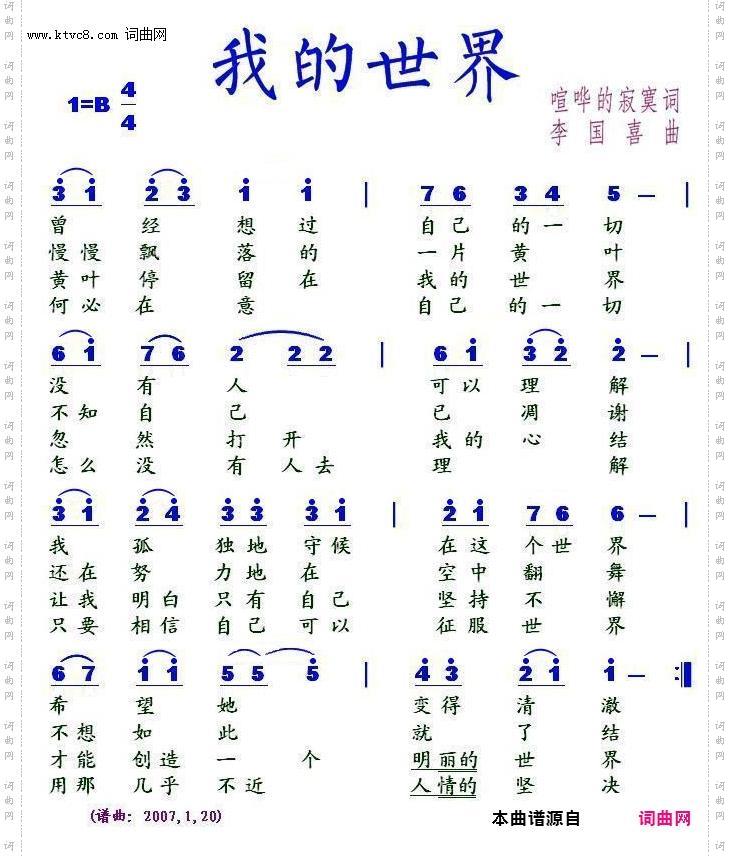 www.ktvc8.com 词曲网
我的世界
1=B 4/4
喧哗的寂寞词
李国喜曲
3 1 2 3 1 1 | 7 6 3 4 5 — |
曾经想过 自己的一切
慢慢飘落的 一片黄叶
黄叶停留在 我的世界
何必在意 自己的一切
6 1 7 6 2 2 2 | 6 1 3 2 2 — |
没有人 可以理解
不知自己 已凋谢
忽然打开 我的心结
怎么没有人去 理解
3 1 2 4 3 3 3 1 | 2 1 7 6 6 — |
我孤独地守候 在这个世界
还在努力地在 空中翻舞
让我明白只有自己 坚持不懈
只要相信自己可以 征服世界
6 7 1 1 5 5 5 | 4 3 2 1 1 — :||
希望她 变得清澈
不想如此 就了结
才能创造一个 明丽的世界
用那几乎不近 人情的坚决
(谱曲: 2007,1,20)
本曲谱源自 词曲网